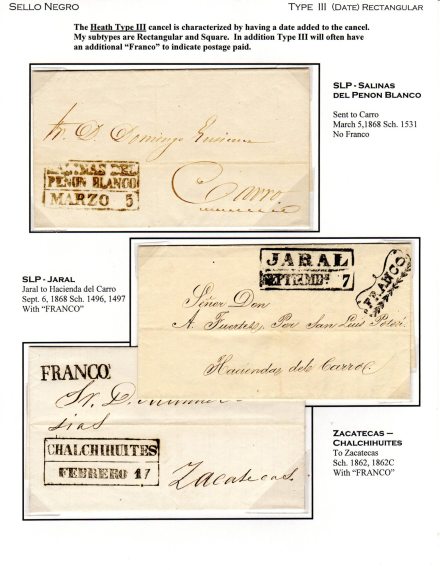 SELLO NEGRO
TYPE III (DATE) RECTANGULAR
The Heath Type III cancel is characterized by having a date added to the cancel.
My subtypes are Rectangular and Square. In addition Type III will often have
an additional “Franco” to indicate postage paid.
SLP - SALINAS
DEL PENON BLANCO
Sent to Carro
March 5,1868 Sch. 1531
No Franco
D. Domingo
SALINAS DEL
PENON BLANCO
MARZO 5
Carro
SLP - JARAL
Jaral to Hacienda del Carro
Sept. 6, 1868 Sch. 1496, 1497
With “FRANCO”
JARAL
SEPTIEMBE 7
FRANCO
Señor Don
A. Fuertes, Por San Luis Potosí
Hacienda del Carro
FRANCO
Sr. D.
CHALCHIHUITES
FEBRERO 17
Zacatecas
ZACATECAS –
CHALCHIHUITES
To Zacatecas
Sch. 1862, 1862C
With “FRANCO”